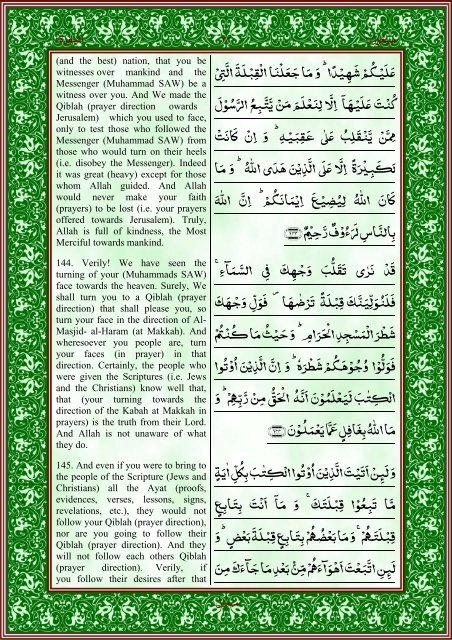 (and the best) nation, that you be
witnesses over mankind and the
Messenger (Muhammad SAW) be a
witness over you. And We made the
Qiblah (prayer direction owards
Jerusalem) which you used to face,
only to test those who followed the
Messenger (Muhammad SAW) from
those who would turn on their heels
(i.e. disobey the Messenger). Indeed
it was great (heavy) except for those
whom Allah guided. And Allah
would never make your faith
(prayers) to be lost (i.e. your prayers
offered towards Jerusalem). Truly,
Allah is full of kindness, the Most
Merciful towards mankind.
144. Verily! We have seen the
turning of your (Muhammads SAW)
face towards the heaven. Surely, We
shall turn you to a Qiblah (prayer
direction) that shall please you, so
turn your face in the direction of Al-
Masjid- al-Haram (at Makkah). And
wheresoever you people are, turn
your faces (in prayer) in that
direction. Certainly, the people who
were given the Scriptures (i.e. Jews
and the Christians) know well that,
that (your turning towards the
direction of the Kabah at Makkah in
prayers) is the truth from their Lord.
And Allah is not unaware of what
they do.
145. And even if you were to bring to
the people of the Scripture (Jews and
Christians) all the Ayat (proofs,
evidences, verses, lessons, signs,
revelations, etc.), they would not
follow your Qiblah (prayer direction),
nor are you going to follow their
Qiblah (prayer direction). And they
will not follow each others Qiblah
(prayer direction). Verily, if
you follow their desires after that
عَلَيْكُمْ شَهِيْدًا ؕ وَ مَا جَعَلْنَا الْقِبْلَةَ الَّتِيْ
كُنْتَ عَلَيْهَاۤ اِلَّا لِنَعْلَمَ مَنْ يَّتَّبِعُ الرَّسُوْلَ
مِمَّنْ يَّنْقَلِبُ عَلٰى عَقِبَيْهِ ؕ وَ اِنْ كَانَتْ
لَكَبِيْرَةً اِلَّا عَلَى الَّذِيْنَ هَدَى اللّٰهُ ؕ وَ مَا
كَانَ اللّٰهُ لِيُضِيْعَ اِيْمَانَكُمْ ؕ اِنَّ اللّٰهَ
بِالنَّاسِ لَرَءُوْفٌ رَّحِيْمٌ ﴿۱۴۳﴾
قَدْ نَرٰى تَقَلُّبَ وَجْهِكَ فِى السَّمَآءِ ۚ
فَلَنُوَلِّيَنَّكَ قِبْلَةً تَرْضٰىهَا ۪ فَوَلِّ وَجْهَكَ
شَطْرَ الْمَسْجِدِ الْحَرَامِ ؕ وَ حَيْثُ مَا كُنْتُمْ
فَوَلُّوْا وُجُوْهَكُمْ شَطْرَهٗ ؕ وَ اِنَّ الَّذِيْنَ اُوْتُوا
الْكِتٰبَ لَيَعْلَمُوْنَ اَنَّهُ الْحَقُّ مِنْ رَّبِّهِمْ ؕ وَ
مَا اللّٰهُ بِغَافِلٍ عَمَّا يَعْمَلُوْنَ ﴿۱۴۴﴾
وَ لَىِٕنْ اَتَيْتَ الَّذِيْنَ اُوْتُوا الْكِتٰبَ بِكُلِّ اٰيَةٍ
مَّا تَبِعُوْا قِبْلَتَكَ ۚ وَ مَاۤ اَنْتَ بِتَابِعٍ
قِبْلَتَهُمْ ۚ وَ مَا بَعْضُهُمْ بِتَابِعٍ قِبْلَةَ بَعْضٍ ؕ وَ
لَىِٕنِ اتَّبَعْتَ اَهْوَآءَهُمْ مِّنْۢ بَعْدِ مَا جَآءَكَ مِنَ